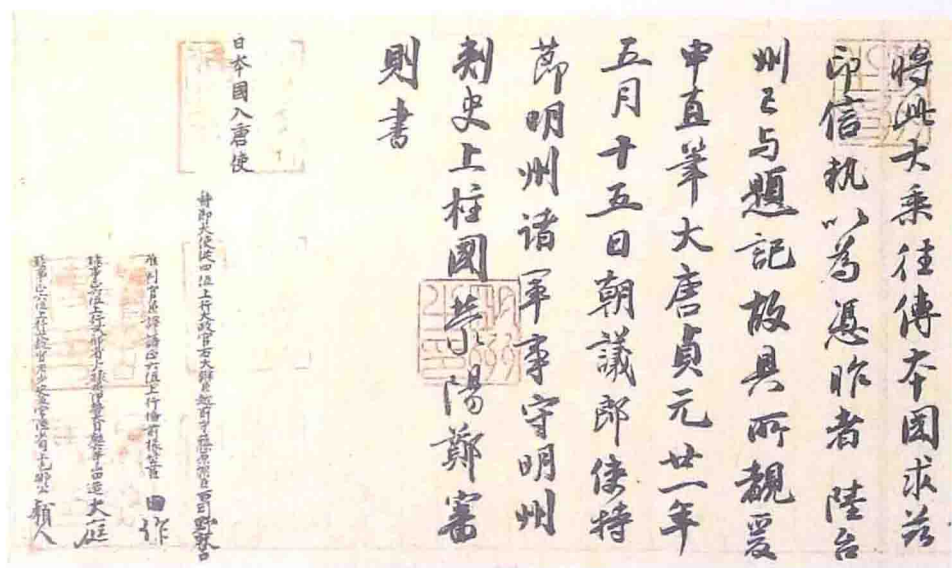 將此大乘往傳本國求茲
印信執以為憑昨者陸台
州已与題記故具所覩爰
申直筆大唐貞元廿一年
五月十五日朝議郎使持
節明州諸軍事守明州
刾史上柱國 滎陽鄭審
則書
日本國入唐使
持節大使從四位上行大政官右大辨兼越前守藤原朝臣
准判官兼譯語正六位上行備前掾笠臣 田作
錄事正六位上行式部省少錄兼伊勢大目 山田造大庭
錄事正六位上行太政官少史兼常陸少目上毛野公 頴人